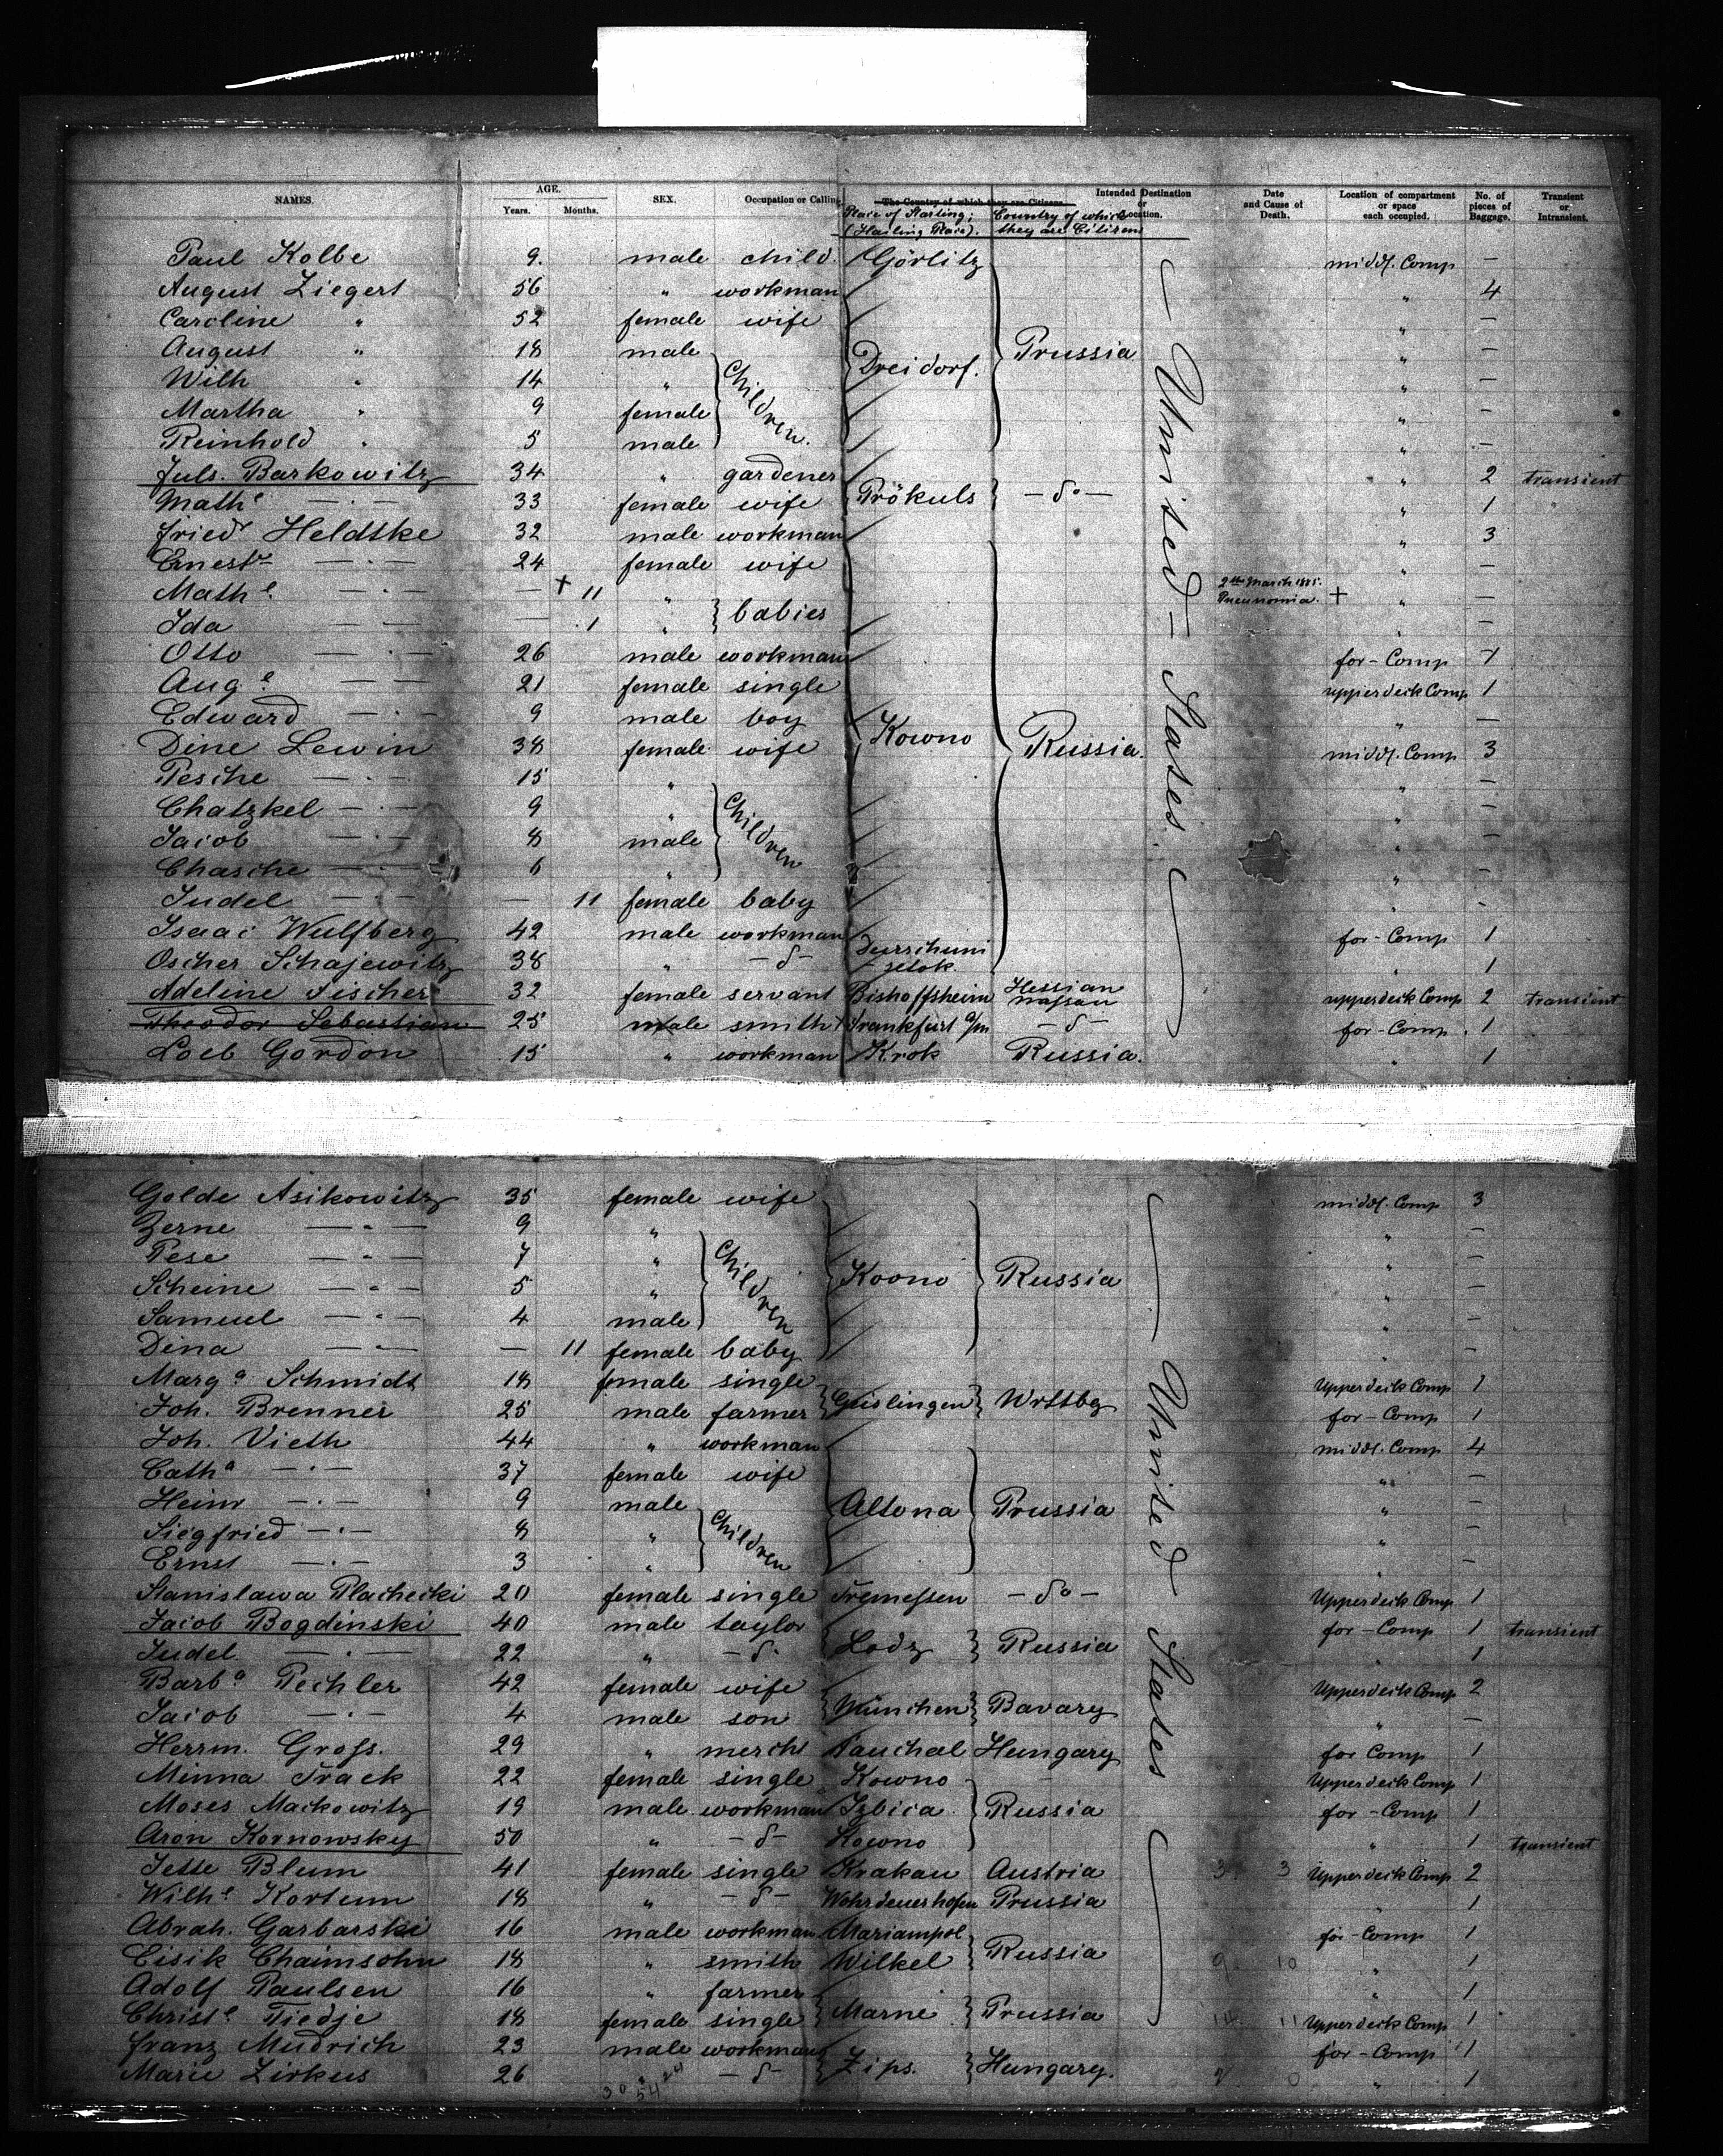 NAMES. AGE. Years. Months. SEX. Occupation or Calling The Country of which they are Citizens. Place of Starting; (Hailing Place). Country of which they are Citizens Intended Destination or Location. Date and Cause of Death. Location of compartment or space each occupied. No. of pieces of Baggage. Transient or Intransient.
Paul Kolbe 9. male child. Görlitz middl. Comp —
August Ziegert 56 " workman " 4
Caroline " 52 female wife " —
August " 18 male Children. Dreidorf. Prussia " —
Wilh " 14 " " —
Martha " 9 female " —
Reinhold " 5 male " —
Juls. Barkowitz 34 " gardener " 2 transient
Mathe —"— 33 female wife Prökuls — do — " 1
Friedr Heldtke 32 male workman " 3
Ernestr —"— 24 female wife " —
Mathe. —"— — + 11 " babies 2th March 1885. Pneunomia. + " —
Ida —"— — 1 " " —
Otto —"— 26 male workman for-Comp 1
Auge. —"— 21 female single upperdeck Comp 1
Edward —"— 9 male boy " —
Dine Lewin 38 female wife Kowno Russia. middl. Comp 3
Pesche —"— 15 " " —
Chatzkel —"— 9 " Children " —
Jacob —"— 8 male " —
Chasche —"— 6 " " —
Judel —"— — 11 female baby " -
Isaac Wulfberg 42 male workman for-Comp 1
Oscher Schajewitz 38 " — do — selok. " 1
Adeline Fischer 32 female servant Bishoffsheim Hessian nassau upperdeck Comp 2 transient
Theodor Sebastian 25 male smith Frankfurt a/m — do — for-Comp. 1
Loeb Gordon 15 " workman Krok Russia. " 1
United States
Golde Asikowitz 35 female wife middl. Comp 3
Zerne —"— 9 " " —
Pese —"— 7 " Children " —
Scheine —"— 5 " Koono Russia " —
Samuel —"— 4 male " —
Dina —"— — 11 female baby " —
Marga Schmidt 18 female single Geislingen Wrttbg Upperdeck Comp 1
Joh. Brenner 25 male farmer for-Comp 1
Joh. Vieth 44 " workman middl. Comp 4
Catha —"— 37 female wife " —
Heinr —"— 9 male Altona Prussia " —
Siegfried —"— 8 " Children " —
Ernst —"— 3 " " —
Stanislawa Plachecki 20 female single Tremessen — do — Upperdeck Comp 1
Jacob Bogdinski 40 male taylor Lodz Russia for-Comp 1 transient
Judel. —"— 22 " — do — " 1
Barba Pechler 42 female wife München Bavary Upperdeck Comp 2
Jacob —"— 4 male son " —
Herrm. Gross. 29 " mercht Hungary for Comp 1
Minna Track 22 female single Kowno Upperdeck Comp 1
Moses Mackowitz 19 male workman Izbica Russia for-Comp 1
Aron Kornowsky 50 " — do — Kowno " 1 transient
Jette Blum 41 female single Krakau Austria 3 3 Upperdeck Comp 2
Wilhe Kortum 18 " — do — Prussia " 1
Abrah. Garbarski 16 male workman Mariampol for-Comp 1
Eisik Chaimsohn 18 " smith Wilkel Russia 9 10 " 1
Adolf Paulsen 16 " farmer Marne Prussia " 1
Christe. Tiedje 18 female single 14 11 Upperdeck Comp 1
Franz Mudrich 23 male workman Zips. Hungary. for-Comp 1
Marie Zirkus 26 — do — " 1
United States
30 54 24